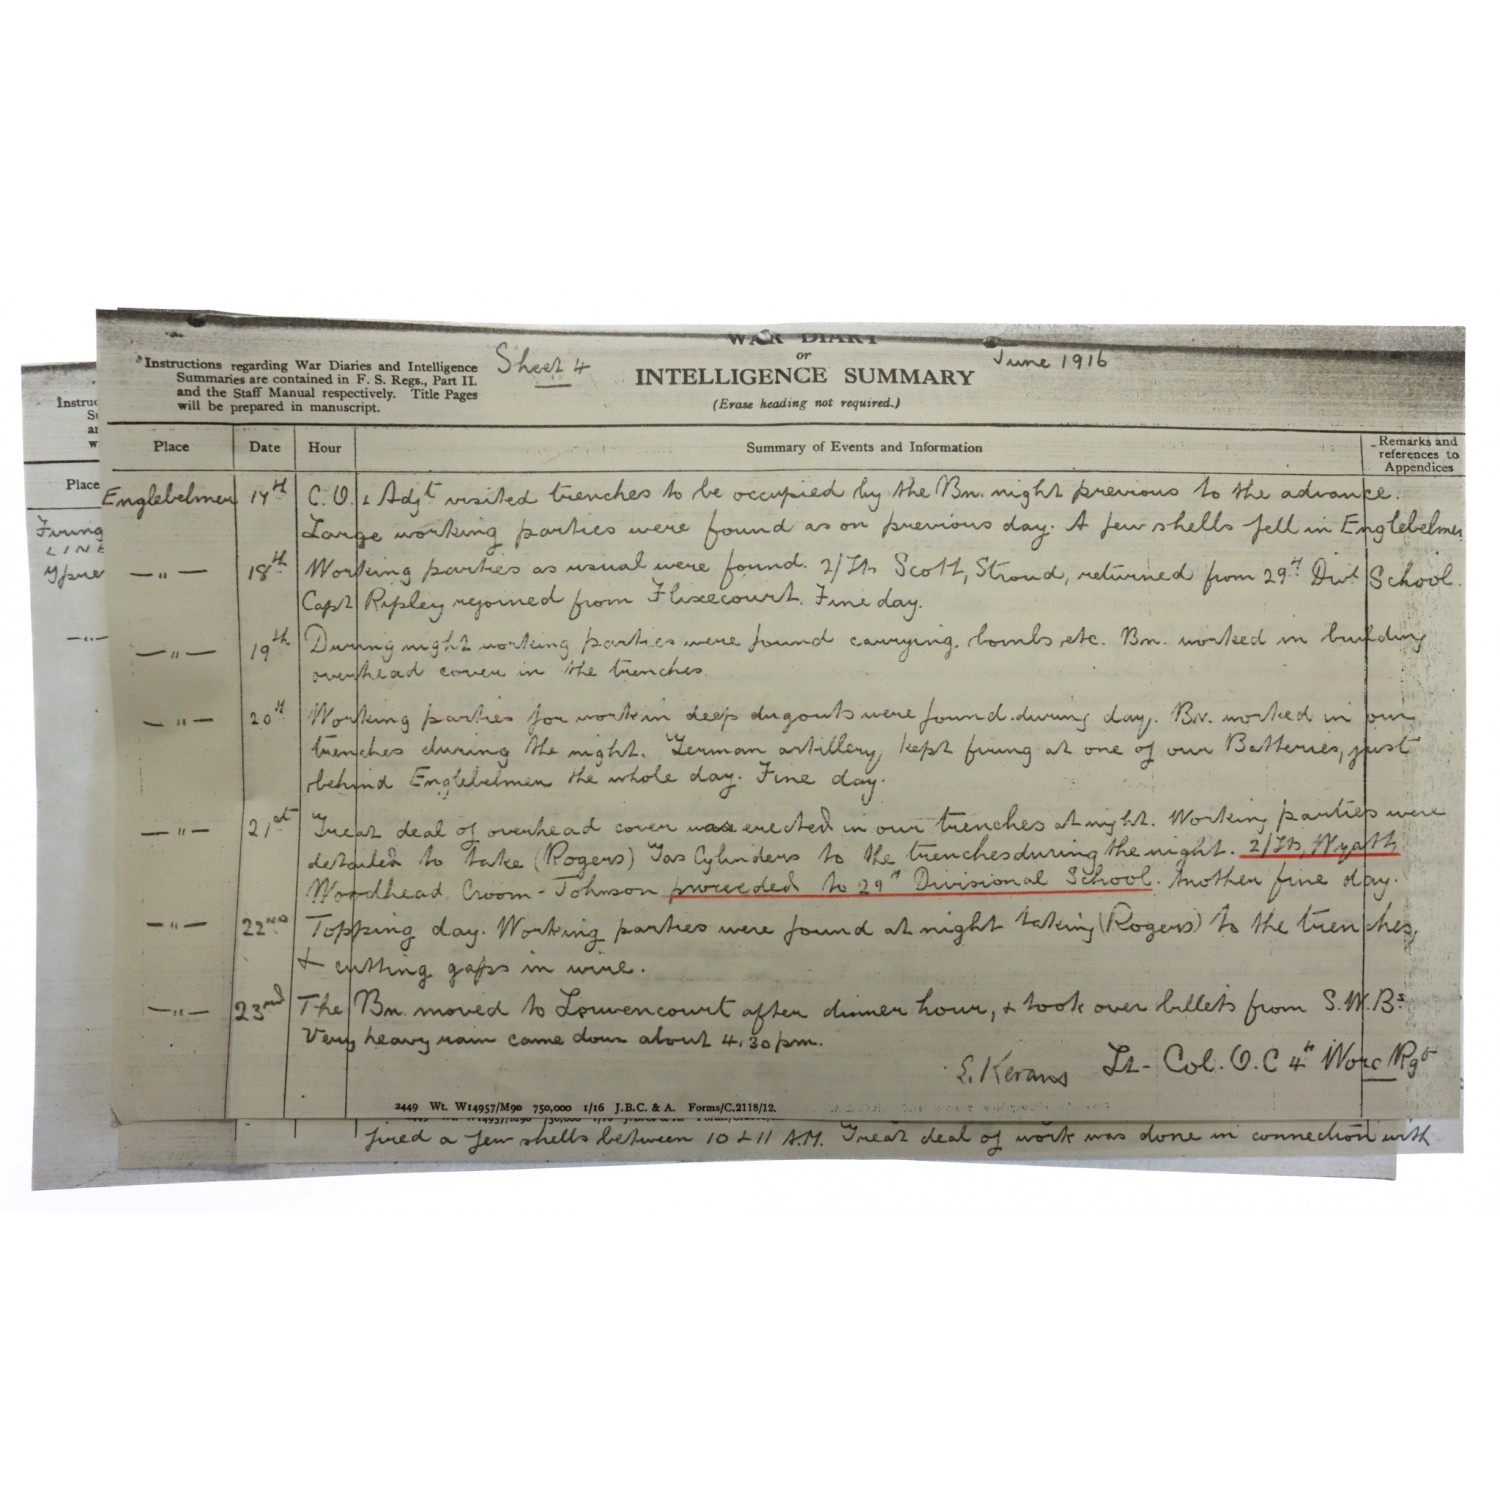 WAR DIARY
or
INTELLIGENCE SUMMARY
(Erase heading not required.)
Instructions regarding War Diaries and Intelligence
Summaries are contained in F. S. Regs., Part II.
and the Staff Manual respectively. Title Pages
will be prepared in manuscript.
Sheet 4
June 1916
Place Date Hour Summary of Events and Information Remarks and references to Appendices
Englebelmer 17th C.O. & Adjt visited trenches to be occupied by the Bn. night previous to the advance.
Large working parties were found as on previous day. A few shells fell in Englebelmer
—"— 18th Working parties as usual were found. 2/Lts Scott, Stroud, returned from 29th Divl School.
Capt Ripley rejoined from Flixecourt. Fine day.
—"— 19th During night working parties were found carrying bombs etc. Bn. worked in building
overhead cover in the trenches.
—"— 20th Working parties for work in deep dugouts were found during day. Bn. worked in our
trenches during the night. German artillery kept firing at one of our Batteries, just
behind Englebelmer the whole day. Fine day.
—"— 21st Great deal of overhead cover was erected in our trenches at night. Working parties were
detailed to take (Rogers) Gas Cylinders to the trenches during the night. 2/Lts, Wyatt,
Woodhead, Croom-Johnson proceeded to 29th Divisional School. Another fine day.
—"— 22nd Topping day. Working parties were found at night taking (Rogers) to the trenches,
& cutting gaps in wire.
—"— 23rd The Bn. moved to Louvencourt after dinner hour, & took over billets from S.W.Bs.
Very heavy rain came down about 4.30 pm.
E. Kerans Lt-Col. O.C 4th Worc Rgt
2449 Wt. W14957/M90 750,000 1/16 J.B.C. & A. Forms/C.2118/12.
fired a few shells between 10 & 11 A.M. Great deal of work was done in connection with
Place
Firing
LINE
Ypre
—"—